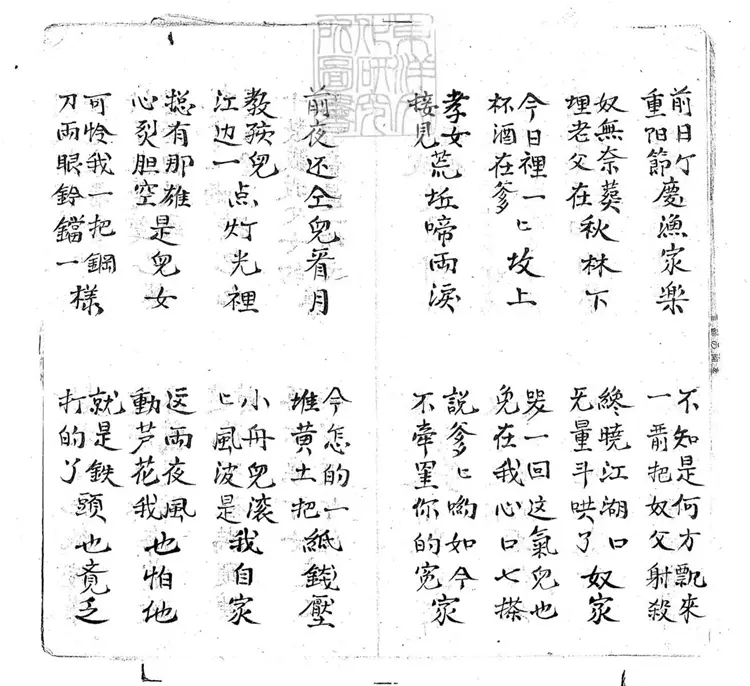 前日个重阳節慶漁家樂
不知是何方飄來一箭把奴父射殺
奴無奈葬埋老父在秋林下
終曉江湖口无量斗哄了奴家
今日裡一ヒ杯酒在爹坟上
哭一回这氣兒也兔在我心口七
孝女接見荒坵啼雨淚
說爹ヒ喲如今不牵罣你的寃家
前夜还仝兒看月
今怎的一堆黄土把紙錢壓
教孩兒江边一点灯光裡
小舟兒滚ヒ風波是我自家
搃有那雄心烈胆空是兒女
这雨夜風動芦花我也怕他
可怜我一把鋼刀兩眼鈴鐺一樣
就是鉄打的了頭也竟乏